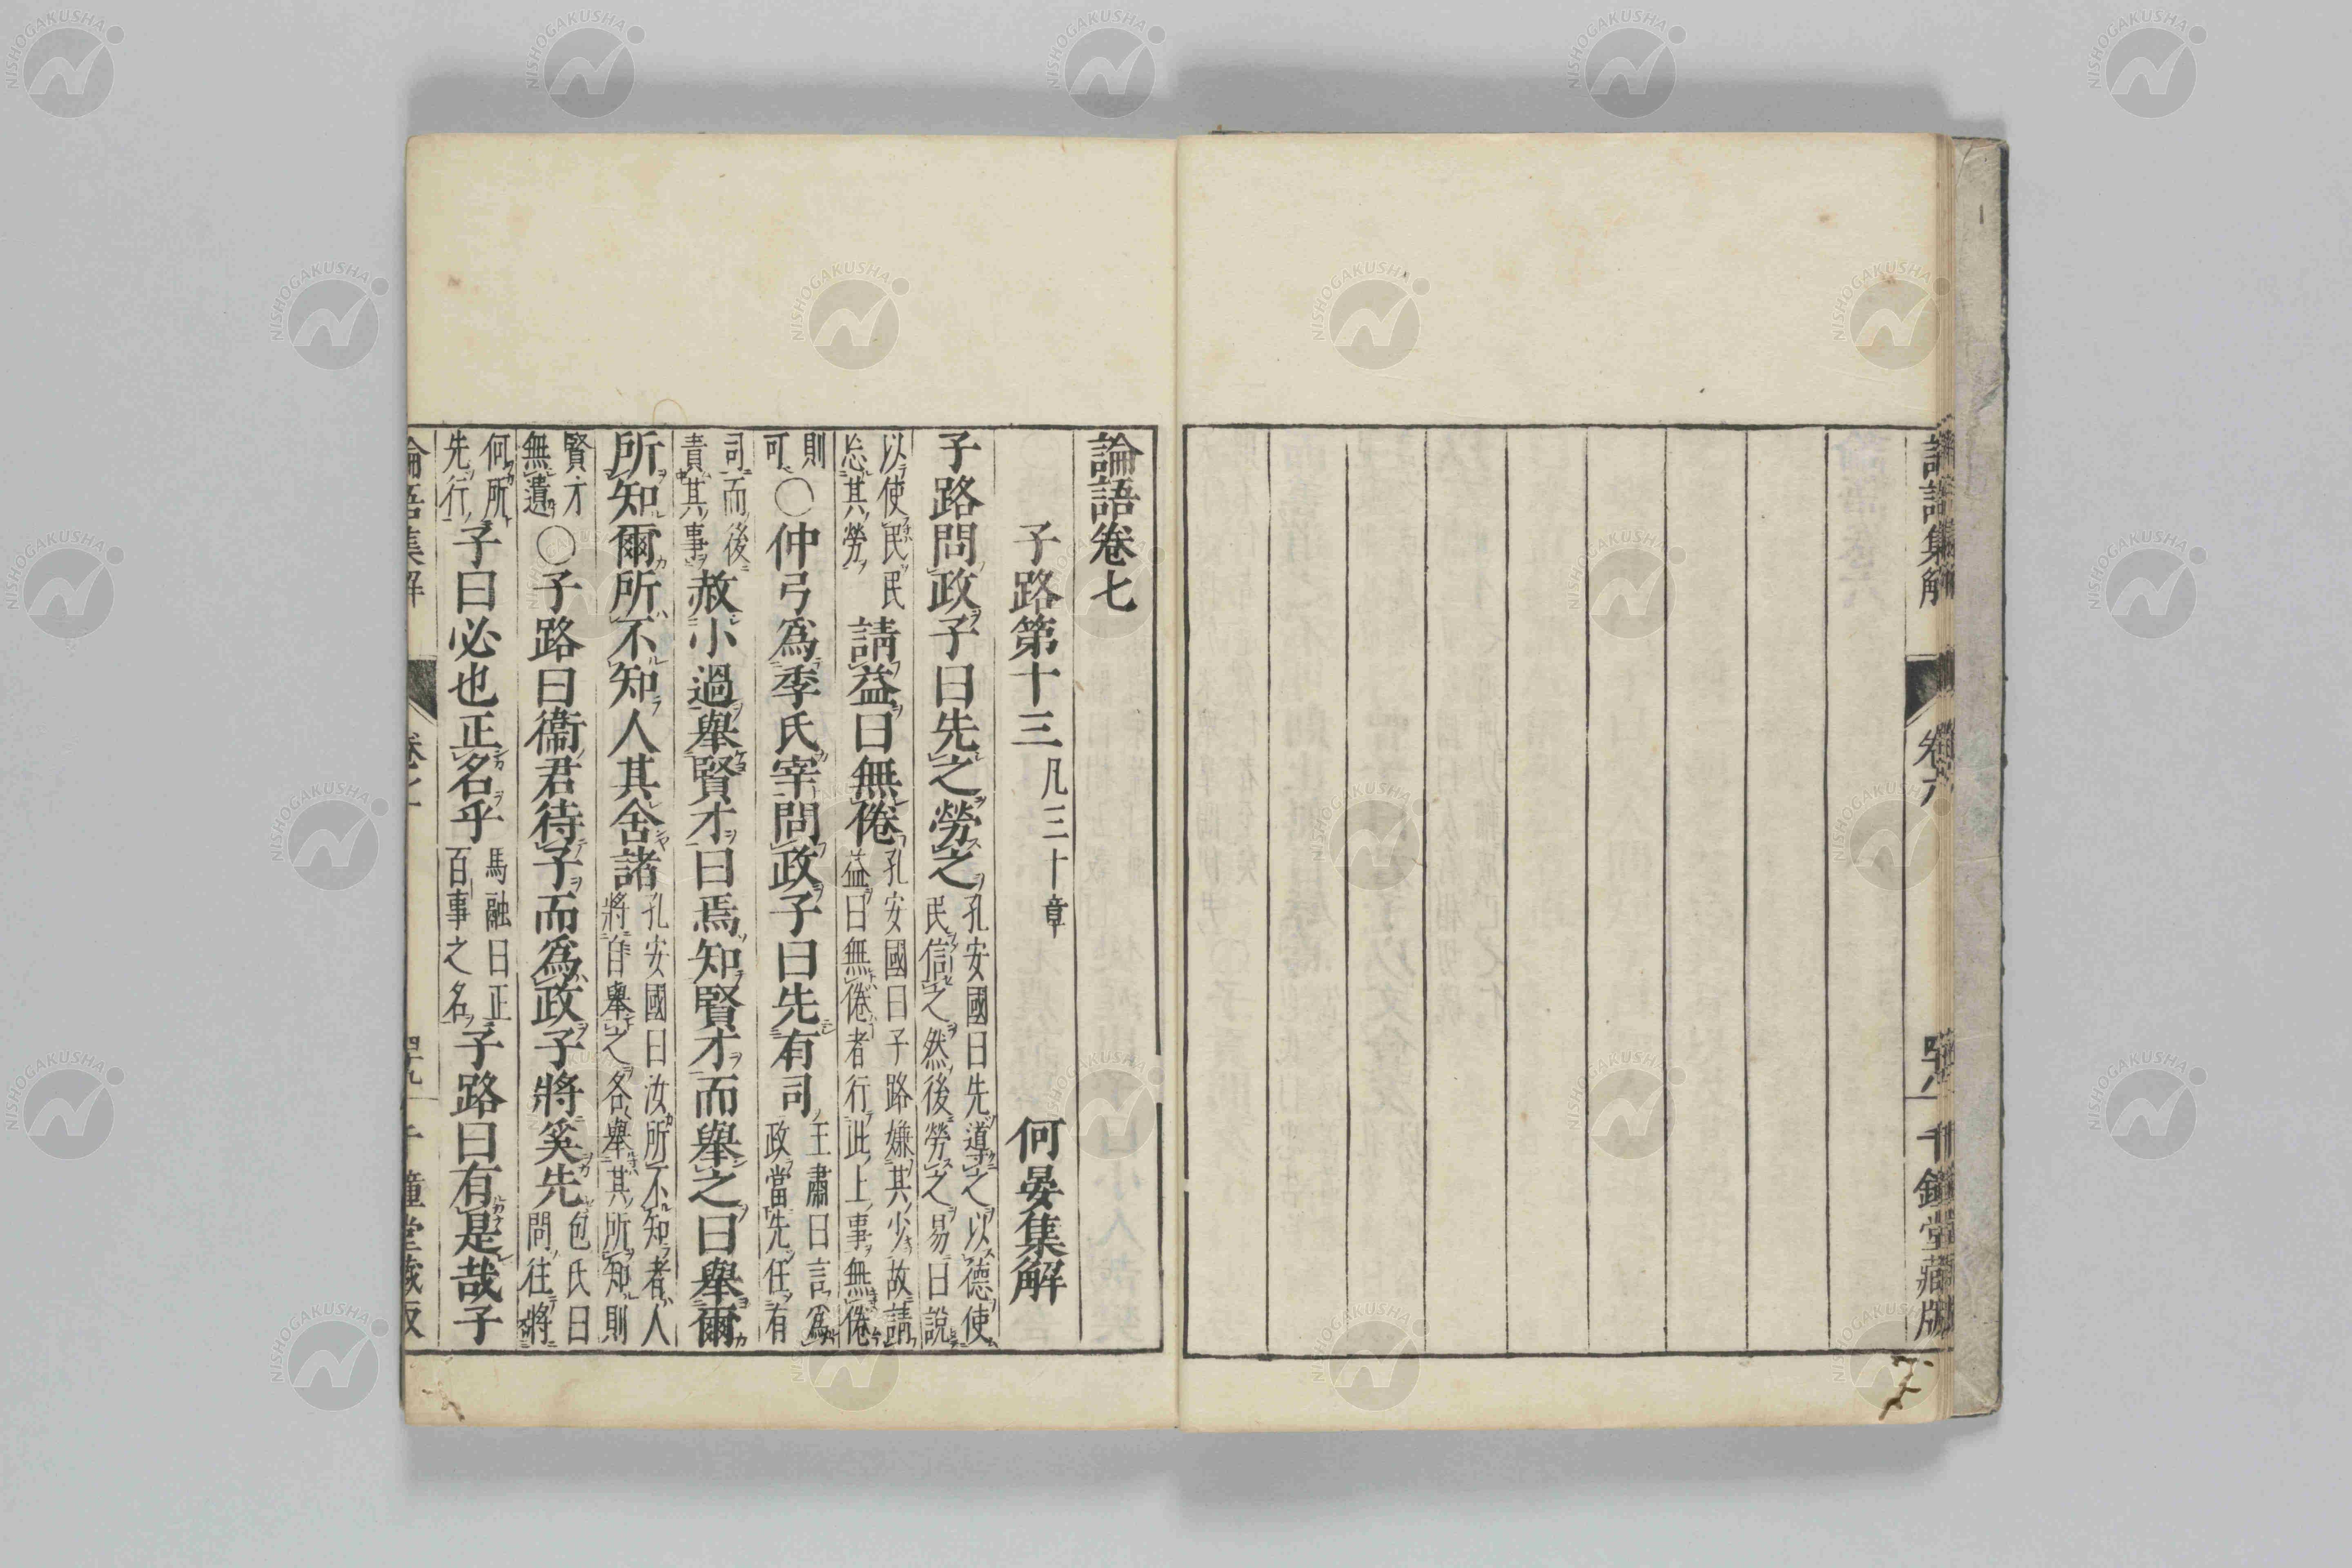 論語集解
卷六
千鍾堂藏版
論語卷七
子路第十三凡三十章
何晏集解
子路問政子曰先之勞之孔安國曰先導之以德使民信之然後勞之易曰說
以使民民忘其勞請益曰無倦孔安國曰子路嫌其少故請益曰無倦者行此上事無倦
則可〇仲弓爲季氏宰問政子曰先有司王肅曰言爲政當先任有
司而後責其事赦小過舉賢才曰焉知賢才而舉之曰舉爾
所知爾所不知人其舍諸孔安國曰汝所不知者人將自舉之各舉其所知則
賢才無遺〇子路曰衞君待子而爲政子將奚先包氏曰問往將
何所先行子曰必也正名乎馬融曰正百事之名子路曰有是哉子
NISHOGAKUSHA